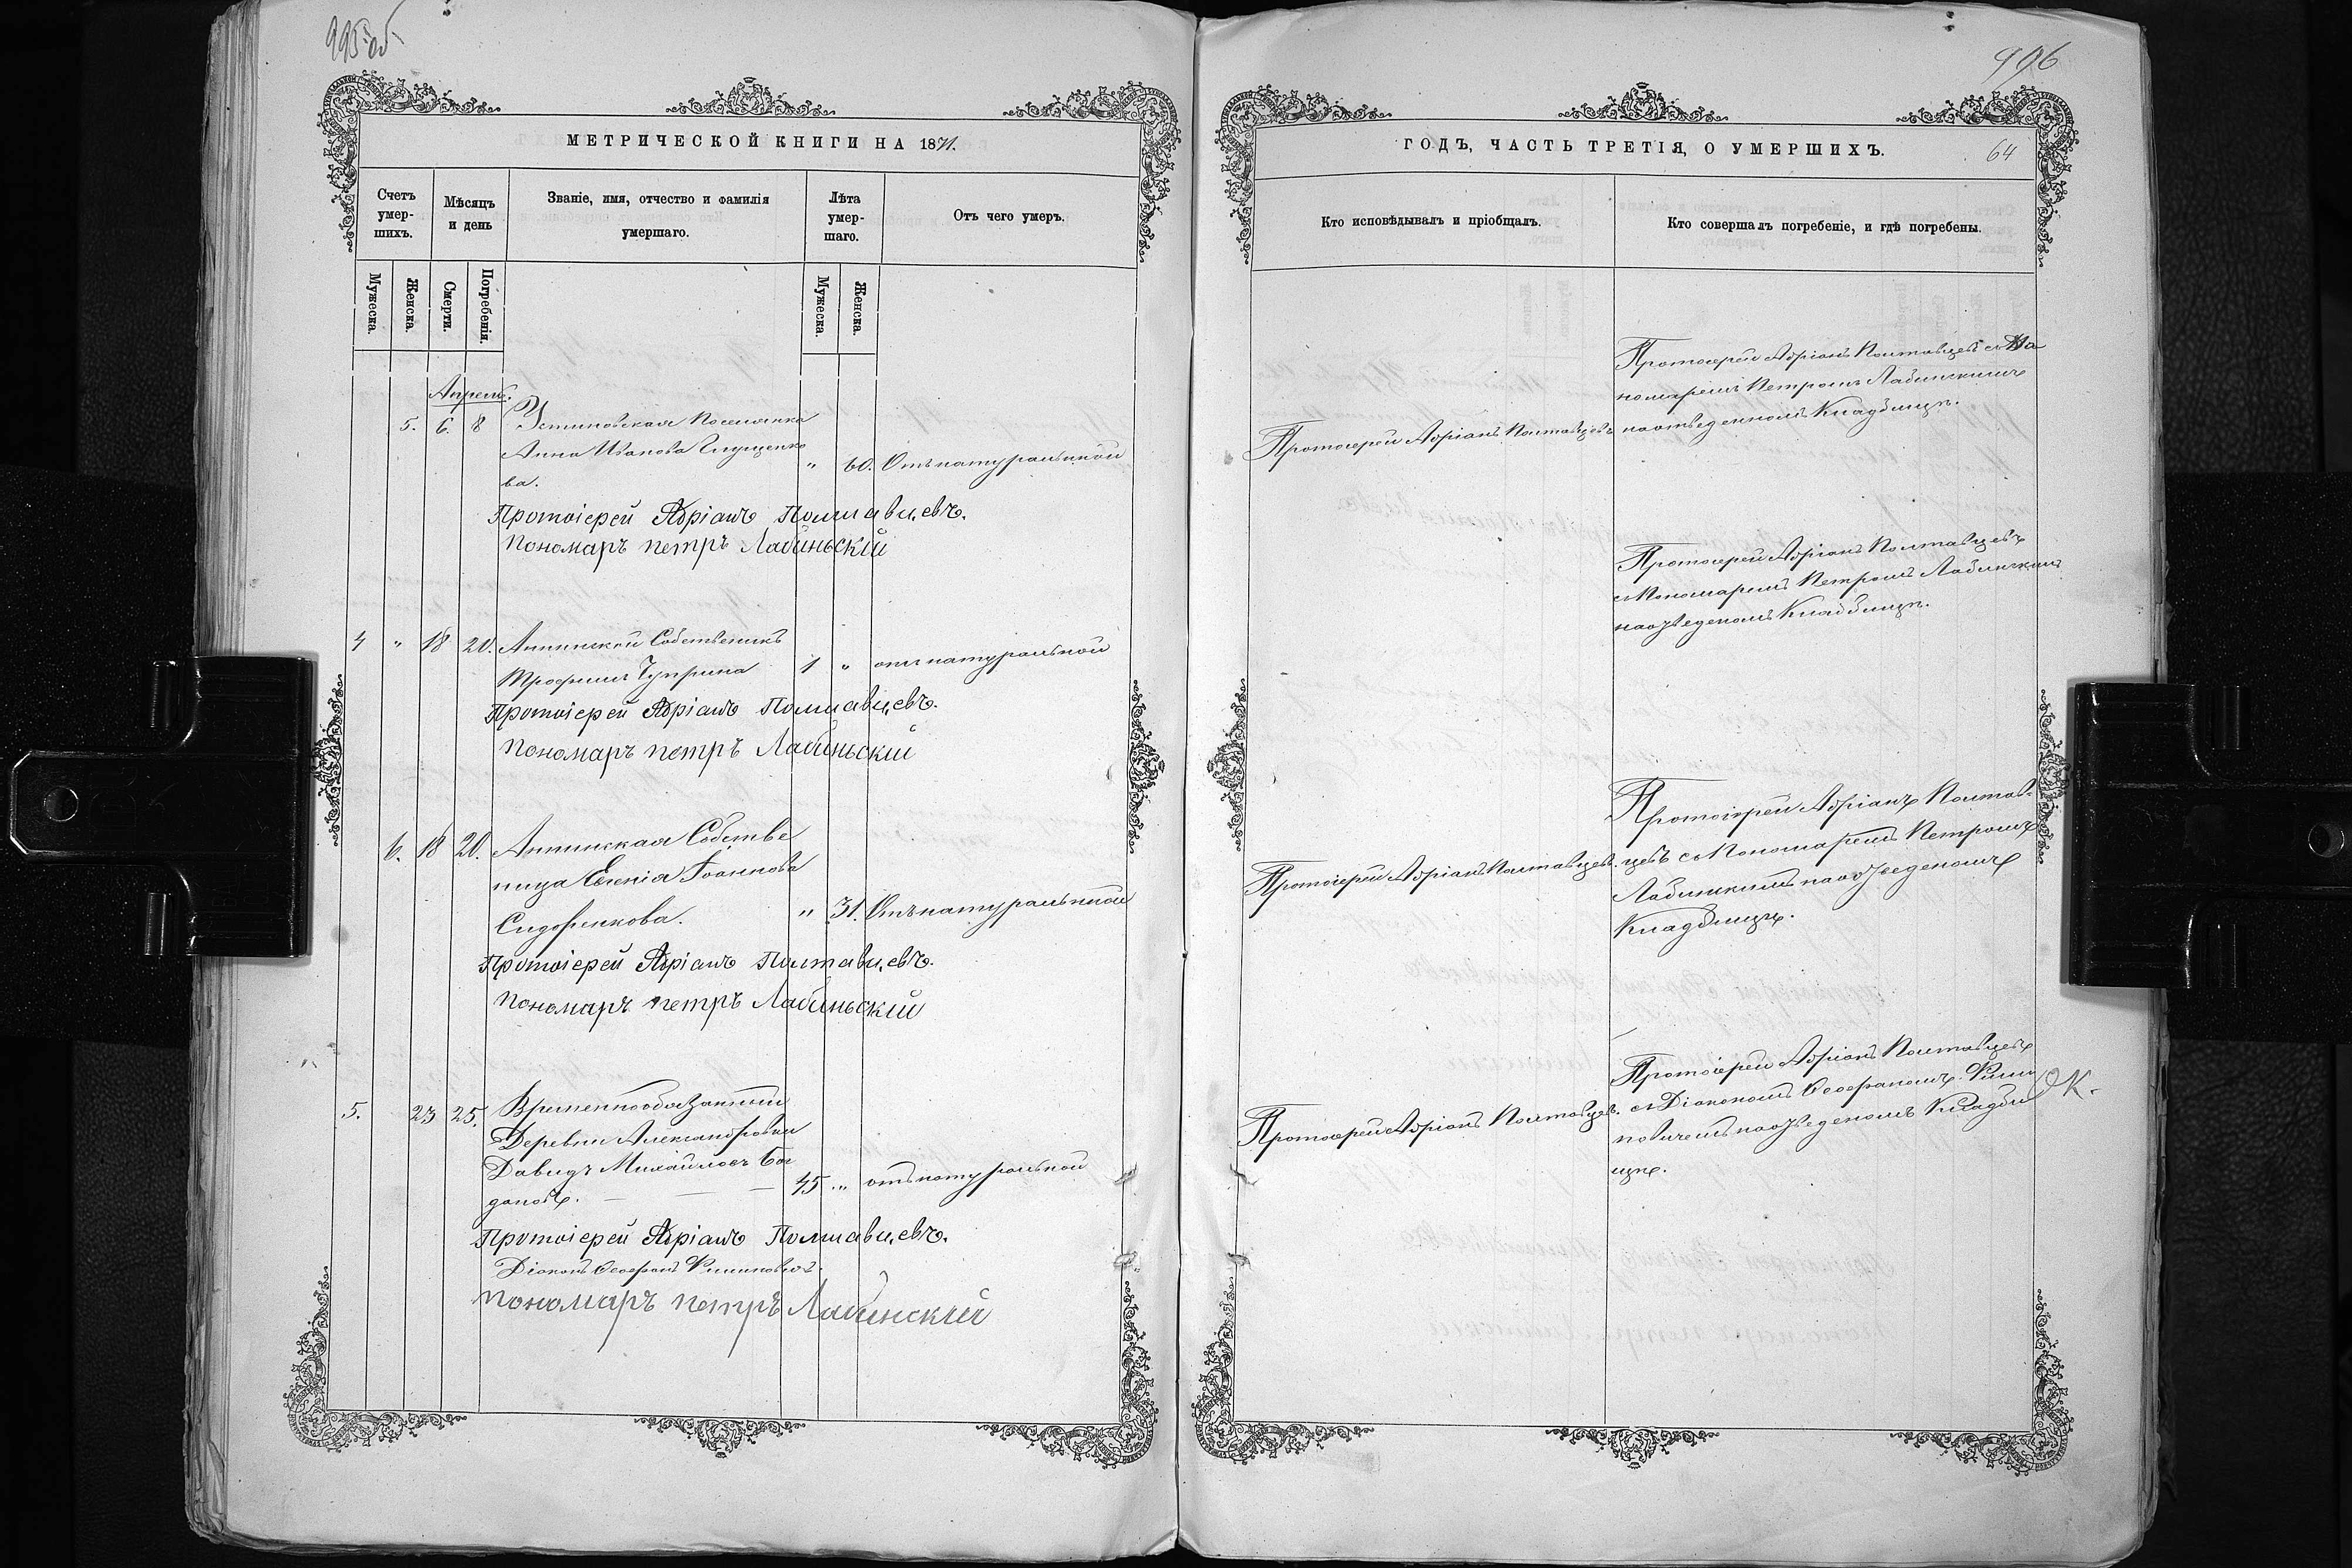 995 об
МЕТРИЧЕСКОЙ КНИГИ НА 1871.
Счетъ умер-шихъ.
Мѣсяцъ и день
Званіе, имя, отчество и фамилія умершаго.
Лѣта умер-шаго.
Отъ чего умеръ.
Мужеска.
Женска.
Смерти.
Погребенія.
Мужеска.
Женска.
Апрель.
5. 6. 8 Устиновская Поселянка
Анна Иванова Глущенко
ва. " 60. Отъ натуральной
Протоіерей Адріанъ Полтавцевъ.
пономаръ петръ Лабиньскій
4 " 18 20. Аннинскій Собственикъ
Трофимъ Чуприна 1 " отъ натуральной
Протоіерей Адріанъ Полтавцевъ.
пономаръ петръ Лабиньскій
6. 18 20. Аннинская Собстве
ница Евгенія Іоаннова
Сидоренкова. " 31. Отъ натуральной
Протоіерей Адріанъ Полтавцевъ.
пономаръ петръ Лабиньскій
5. 23 25. Временнообязанный
Деревни Александровки
Давидъ Михайловъ Бог
дановъ. 45 " отъ натуральной
Протоіерей Адріанъ Полтавцевъ.
Діаконъ Филиповичъ.
пономаръ петръ Лабинскій
996
ГОДЪ, ЧАСТЬ ТРЕТІЯ, О УМЕРШИХЪ.
64
Кто исповѣдывалъ и пріобщалъ.
Кто совершалъ погребеніе, и гдѣ погребены.
Протоіерей Адріанъ Полтавцевъ съ По
номаремъ Петромъ Лабинскимъ
Протоіерей Адріанъ Полтавцевъ
на отведенномъ Кладбищѣ.
Протоіерей Адріанъ Полтавцевъ
съ Пономаремъ Петромъ Лабинскимъ
на отведеномъ Кладбищѣ.
Протоіерей Адріанъ Полтав-
Протоіерей Адріанъ Полтавцевъ.
цевъ съ Пономаремъ Петромъ
Лабинскимъ на отведеномъ
Кладбищѣ.
Протоіерей Адріанъ Полтавцевъ
Протоіерей Адріанъ Полтавцевъ.
съ Діакономъ Фили
повичемъ на отведеномъ Кладби
щѣ.